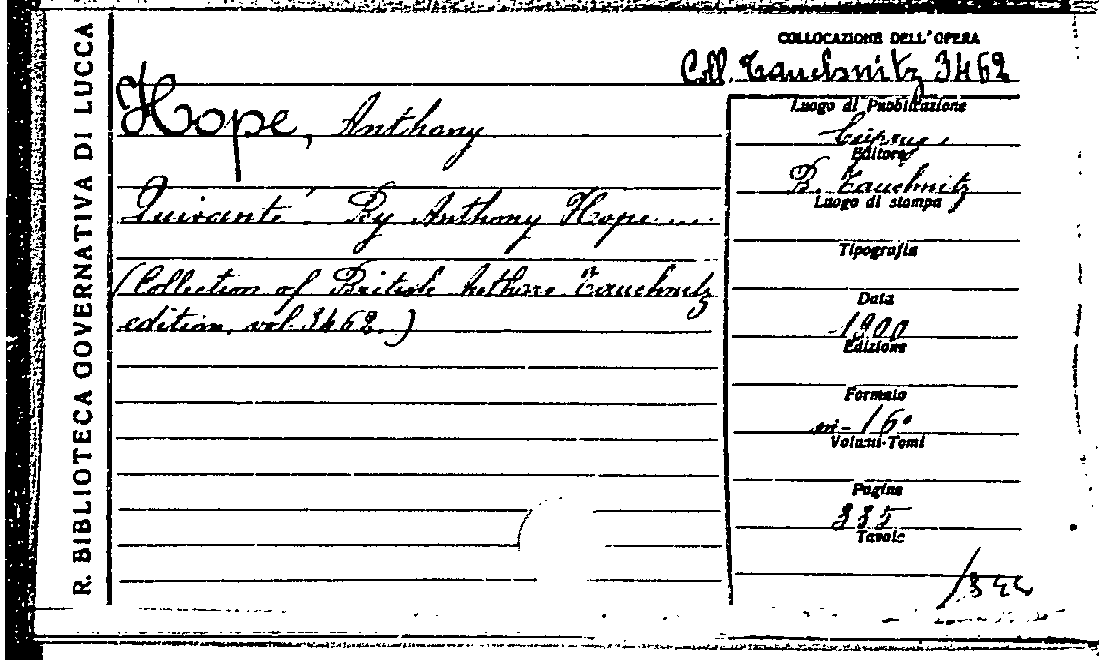 R. BIBLIOTECA GOVERNATIVA DI LUCCA
COLLOCAZIONE DELL'OPERA
Coll. Tauchnitz 3462
Hope, Anthony
Quisanté. By Anthony Hope....
(Collection of British Authors Tauchnitz
edition, vol. 3462.)
Luogo di Pubblicazione
Editore
B. Tauchnitz
Luogo di stampa
Tipografia
Data
1900
Edizione
Formato
in-16°
Volumi-Tomi
Pagine
335
Tavole